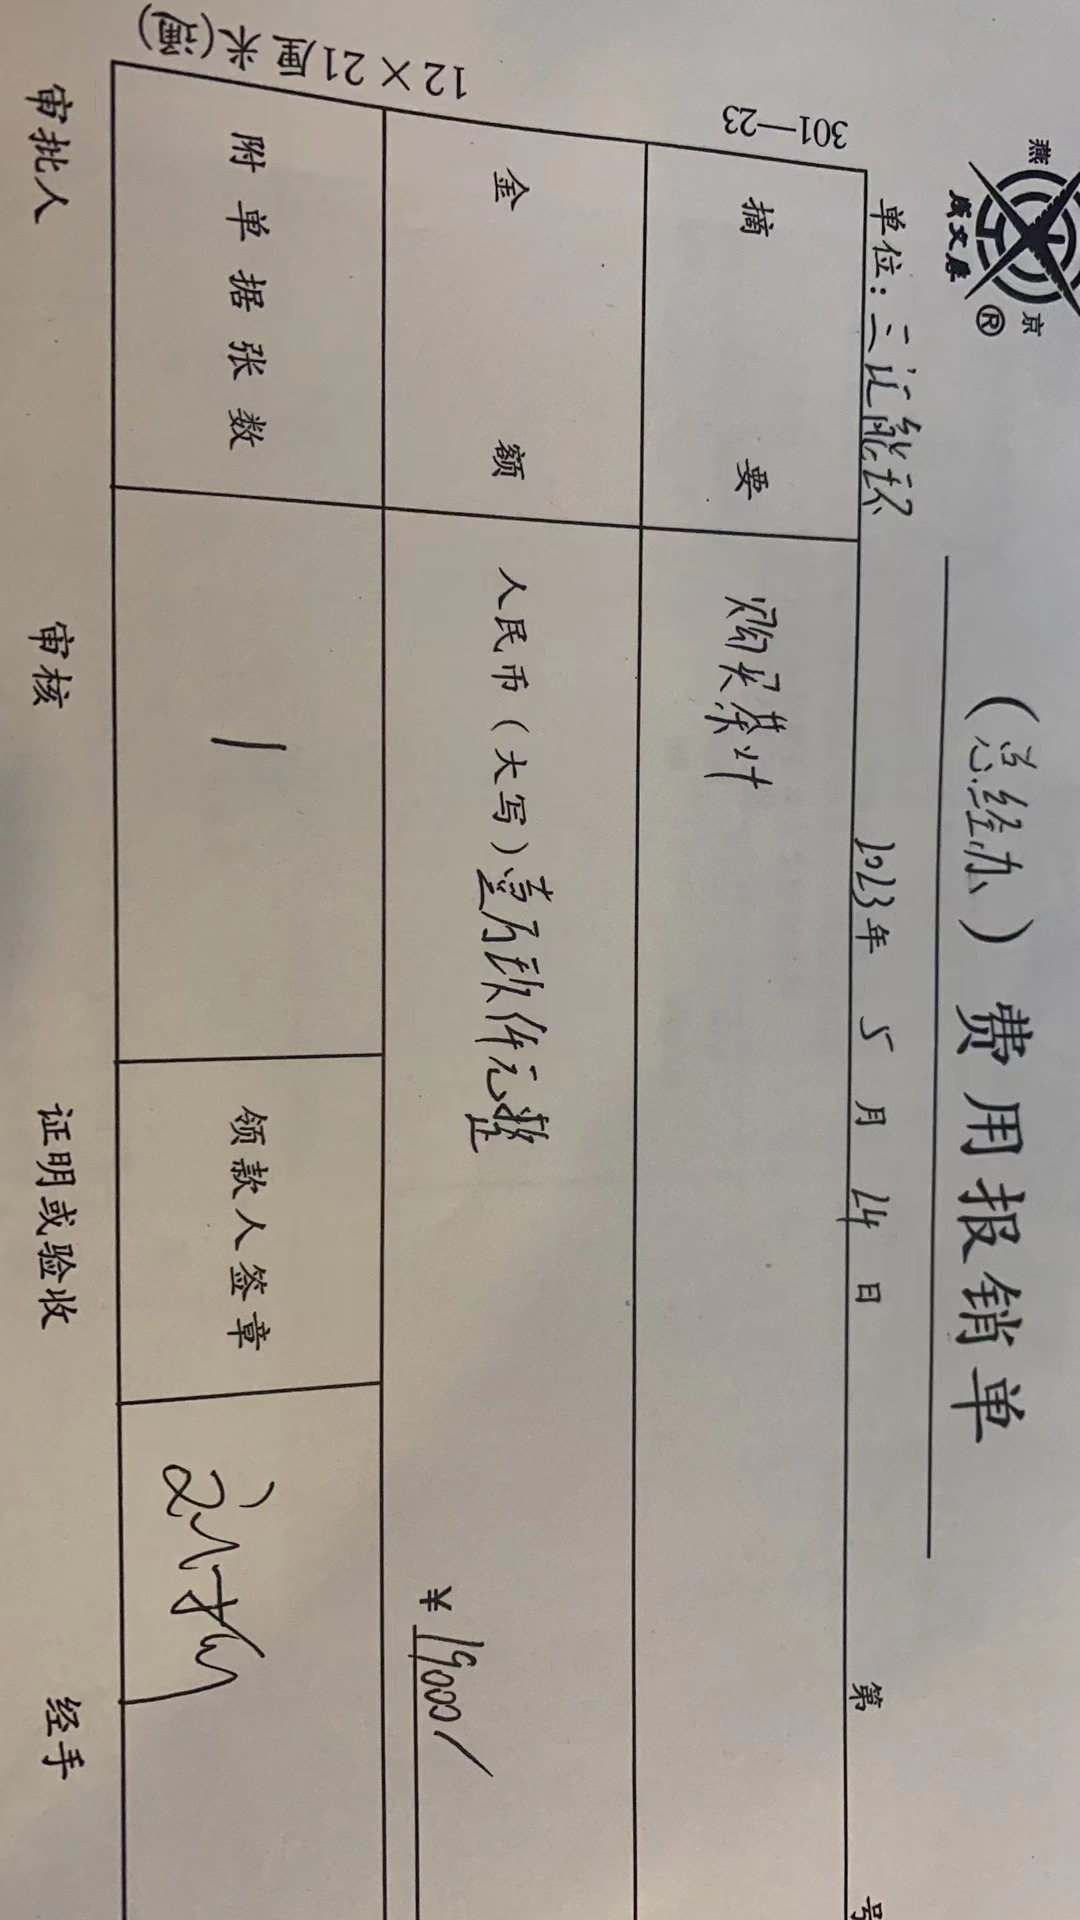 燕 京
成文厚
®
(总经办)费用报销单
单位:三汇能环 2023年 5 月 24 日 第 号
301—23
摘 要 购买茶叶
金 额 人民币(大写)壹万玖仟元整 ¥ 19000/
附单据张数 1 领款人签章
12×21厘米(通)
审批人 审核 证明或验收 经手